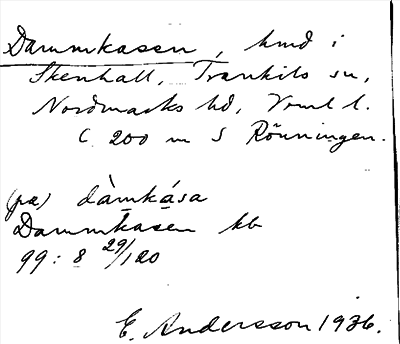 Dammkasen, hmd i
Skenhall, Trankils sn,
Nordmarks hd, Vrml l.
C. 200 m S Rönningen.
(pæ) dàmkása
Dammkasen kb
99: 8 29/120
E. Andersson 1936.